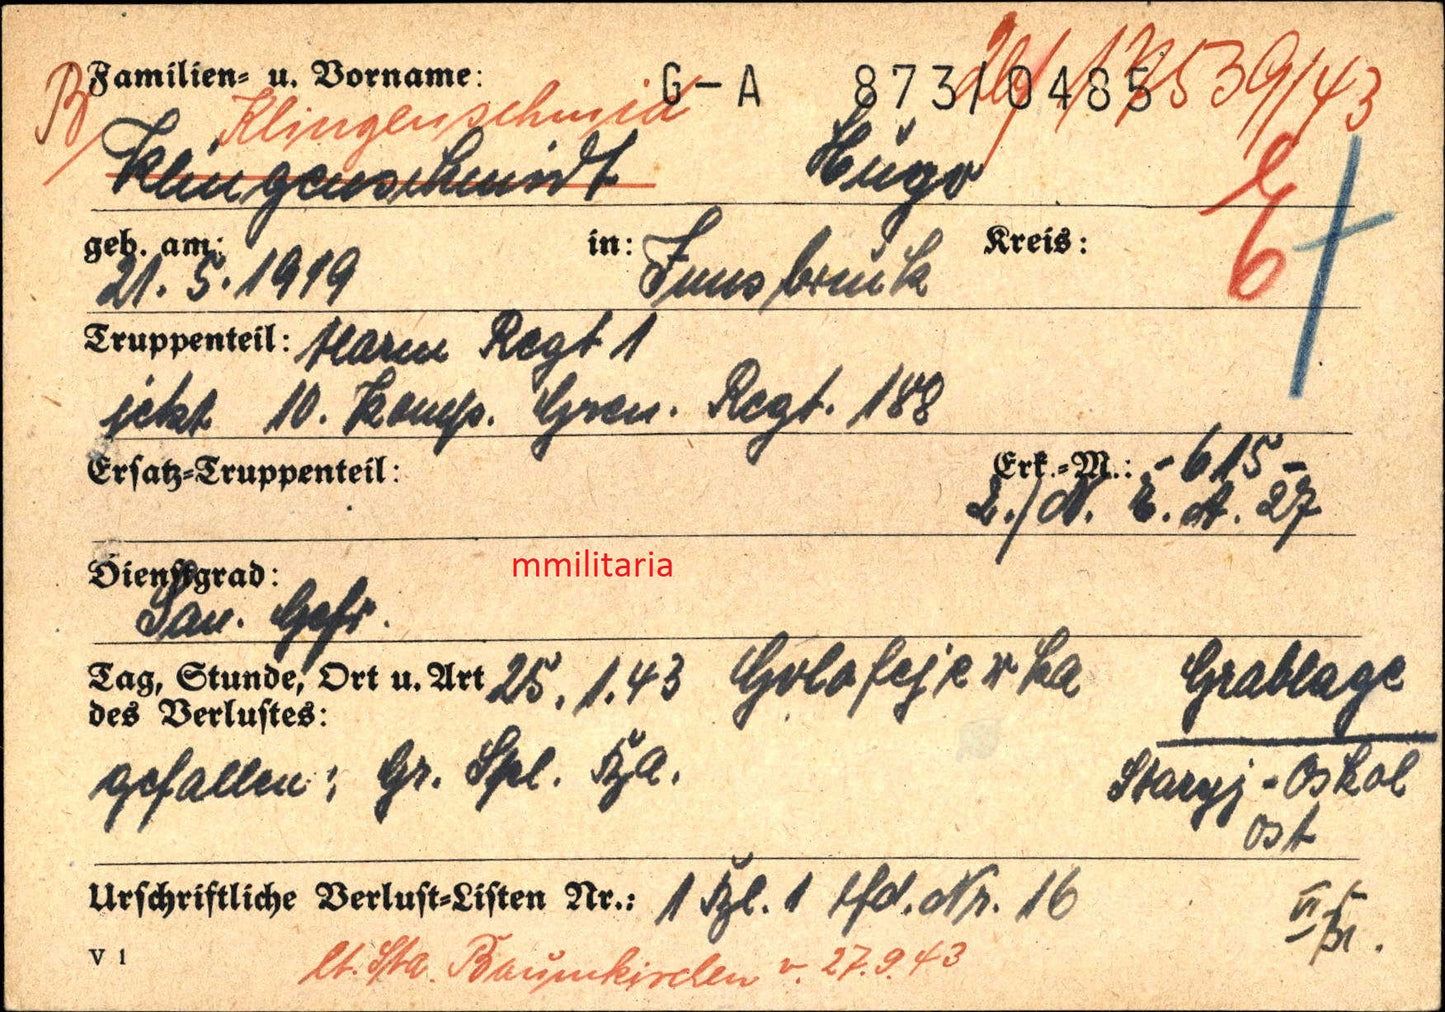 B Familien= u. Vorname: G-A 873/0485 /43
Klingenschmid
Klingenschmidt Hugo
geb. am: in: Innsbruck Kreis:
21. 5. 1919
Truppenteil: Marm Regt 1
jetzt 10. Komp. Gren. Regt. 188
Ersatz=Truppenteil: Erk.=M.: -615-
2./N. E. A. 27
Dienstgrad:
San. Gefr.
Tag, Stunde, Ort u. Art 25. 1. 43 Golofejewka Grablage
des Verlustes:
gefallen; Gr. Spl. Staryj-Oskol
Ost
Urschriftliche Verlust=Listen Nr.: 1 1 lfd. Nr. 16
V 1
lt. Sta. Baumkirchen v. 27.9.43
mmilitaria